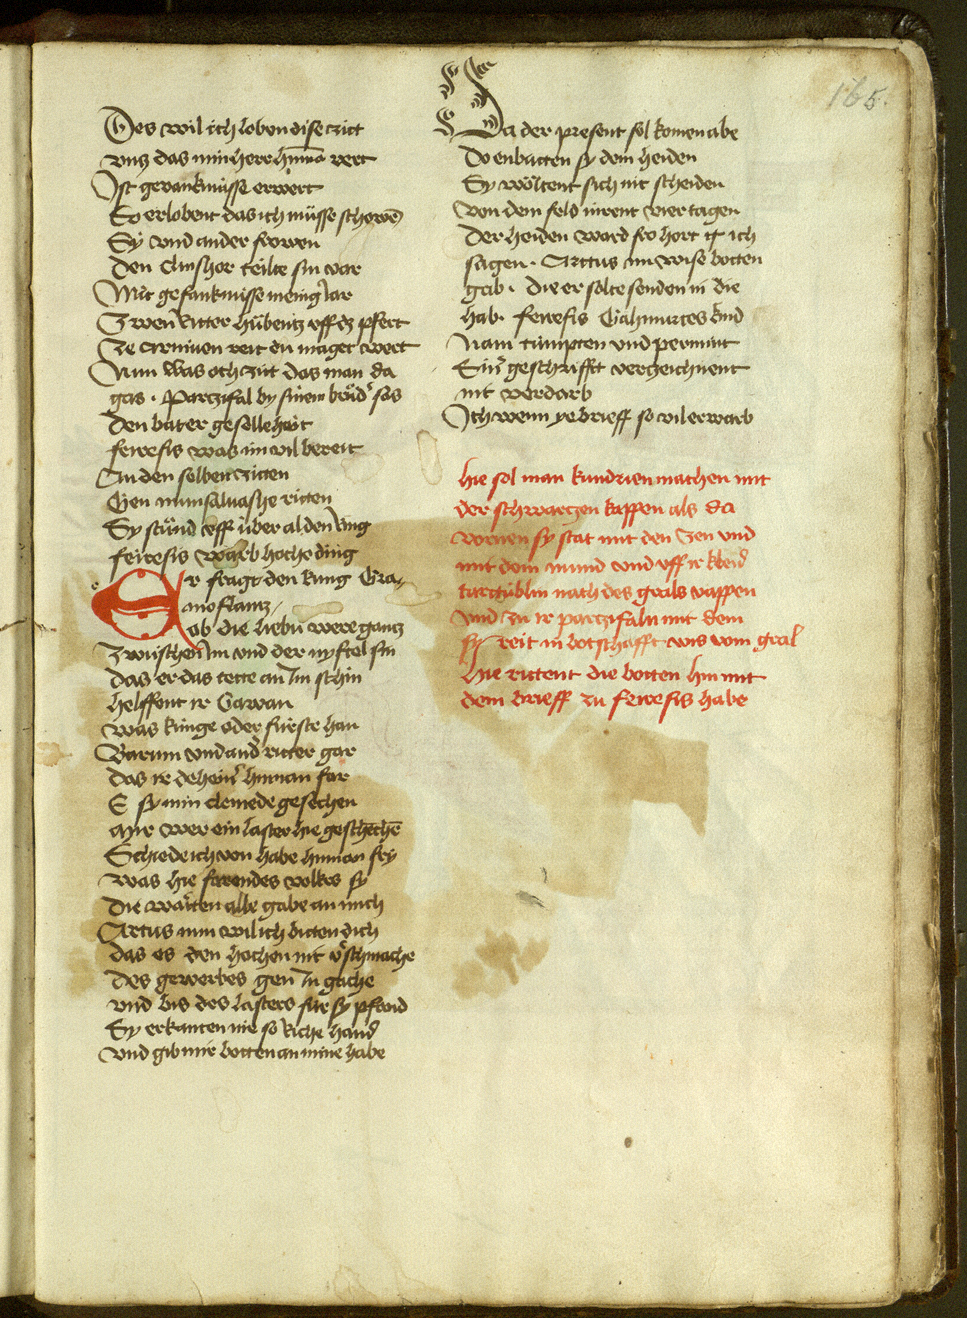 165.
Des wil ich loben dise zitt
vntz das min herr hinnā vert
Ist gevanknüsse erwert
So erlobent das ich müsse schowē
Sy vnd ander frowen
Den Clinshor teilte sin var
Mit gefanknisse menig Iar
Zwen Ritter hübentz vff dz pfert
Ze Arniven reit du maget wert
Nun was och zitt das man da
gas . Parzifal by sinem brůdˀ sas
Den bater gesellekeit
ferefis was im vil bereit
An den selben zitten
Gen munsaluasche ritten
Sy stůnd vff über al den Ring
ferefis warb hoche ding
Er fragt den kung Gra-
moflantz,
ob die liebū were gantz
Zwüschen Im vnd der nyftel sin
das er das tette an Im schin
helffent ir Gawan
was kunge oder fürste han
Barun vnd and ritter gar
das ir dehainˀ hinnan far
E sy min clenede gesechen
ayr wer ein laster hie geschechē
Schiede ich von habe hinnan fry
was hie farendes volkes sy
die warten alle gabe an mich
Artus nun wil ich bitten dich
das es den hochen nit vˀschmache
des gewerbes gen In gache
vnd bis des lasters für sy pfand
Sy erkanten nie so riche hand
vnd gib mir botten an mine habe
Da der present sol komen abe
Do enbatten sy dem heiden
Sy wöltent sich nit scheiden
von dem feld inrent vier tagen
Der heiden ward fro hort ich
sagen . Artus im wise botten
gab . die er solte senden in die
hab . ferefis Gahmuretes kind
Nam timpten vnd permint
Sinˀ geschrifft verzeichnent
nit verdarb
Ich wenn ye brieff so vil erwarb
hie sol man kundrien machen mit
der schwartzen kappen als da
vornen sy stat mit den Zen vnd
mit dem mund vnd vff ir kleid
turttüblin nach des grals wappen
vnd zu ir parzifaln mit dem
sy reit in bottschafft wis vom gral
Hie rittent die botten hin mit
dem brieff zu ferefis habe